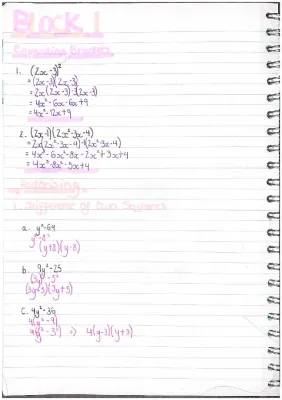 BLOCK 1
Expanding Brackets
1. (2x-3)²
= (2x-3)(2x-3)
= 2x(2x-3)-3(2x-3)
= 4x²-6x-6x+9
= 4x²-12x+9
2. (2x-1)(2x²-3x-4)
= 2x(2x²-3x-4)-1(2x²-3x-4)
= 4x³-6x²-8x-2x²+3x+4
= 4x³-8x²-5x+4
Factorising
1. Difference of Two Squares
a. y²-64
y²-8²
(y+8)(y-8)
b. 9y²-25
(3y)²-5²
(3y-5)(3y+5)
c. 4y²-36
4(y²-9)
4(y²-3²) => 4(y-3)(y+3)